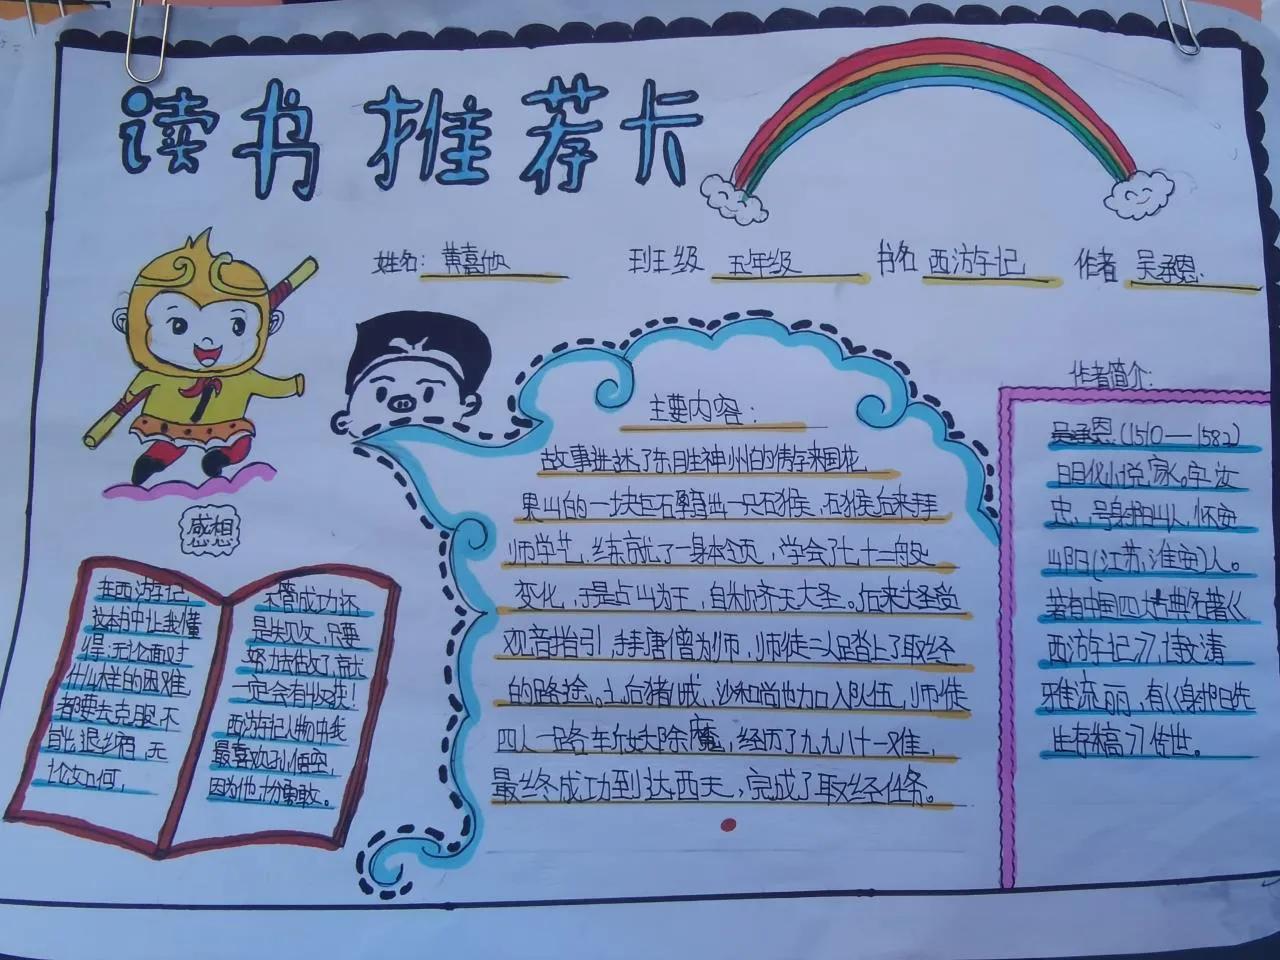 读书推荐卡
姓名：黄嘉灿 班级 五年级 书名 西游字记 作者 吴承恩
主要内容：
故事讲述了东胜神州的傲字来国花
果山的一块巨石孕育出一只石猴，石猴后来拜
师学艺，练就了一身本领，学会了七十二般
变化，于是占山为王，自称齐天大圣。后来大圣受
观音指引，拜唐僧为师，师徒二人踏上了取经
的路途。土后猪八戒、沙和尚也加入队伍，师徒
四人一路斩妖除魔，经历了九九八十一难，
最终成功到达西天，完成了取经任务。
感想
在西游字记
这本书中让我懂
得：无论面对
什么样的困难
都要去克服不
能退缩，无
论如何，
不管成功还
是失败，只要
努力去做了，就
一定会有收获！
西游记人物中我
最喜欢孙悟空，
因为他十分勇敢。
作者简介：
吴承恩：(1510—1582)
明代小说家。字汝
忠，号射阳山人，怀安
山阳(江苏淮安)人。
著有中国四大古典名著《
西游字记》，清
雅流丽，有《射阳先
生存稿》传世。